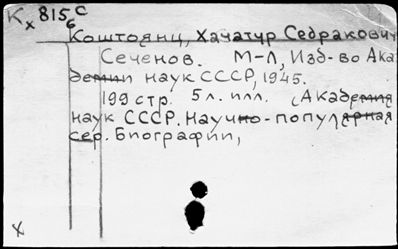 Kx 815 c
6
Коштоянц, Хачатур Седракович
Сеченов. М-Л, Изд-во Ака
демии наук СССР, 1945.
199 стр. 5 л. илл. (Академия
наук СССР. Научно-популярная
сер. Биографии,
X